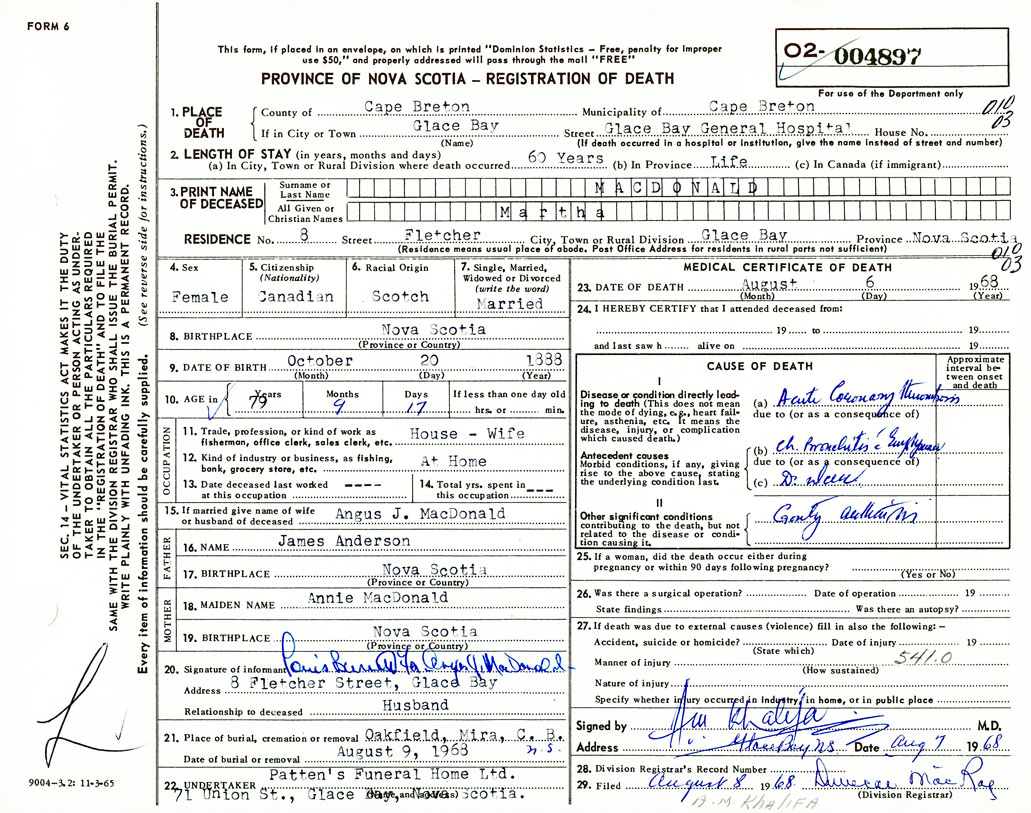 FORM 6
This form, if placed in an envelope, on which is printed "Dominion Statistics – Free, penalty for improper
use $50," and properly addressed will pass through the mail "FREE"
PROVINCE OF NOVA SCOTIA – REGISTRATION OF DEATH
02- 004897
For use of the Department only
010
03
1. PLACE OF DEATH
County of Cape Breton Municipality of Cape Breton
If in City or Town Glace Bay Street Glace Bay General Hospital House No.
(Name) (If death occurred in a hospital or institution, give the name instead of street and number)
2. LENGTH OF STAY (in years, months and days)
(a) In City, Town or Rural Division where death occurred 60 Years (b) In Province Life (c) In Canada (if immigrant)
3. PRINT NAME OF DECEASED
Surname or Last Name MACDONALD
All Given or Christian Names Martha
RESIDENCE No. 8 Street Fletcher City, Town or Rural Division Glace Bay Province Nova Scotia
(Residence means usual place of abode. Post Office Address for residents in rural parts not sufficient)
010
03
4. Sex
Female
5. Citizenship
(Nationality)
Canadian
6. Racial Origin
Scotch
7. Single, Married,
Widowed or Divorced
(write the word)
Married
8. BIRTHPLACE Nova Scotia
(Province or Country)
9. DATE OF BIRTH October 20 1888
(Month) (Day) (Year)
10. AGE in Years Months Days If less than one day old
79 9 17 hrs. or min.
OCCUPATION
11. Trade, profession, or kind of work as
fisherman, office clerk, sales clerk, etc. House - Wife
12. Kind of industry or business, as fishing,
bonk, grocery store, etc. At Home
13. Date deceased last worked
at this occupation ----
14. Total yrs. spent in
this occupation ---
15. If married give name of wife
or husband of deceased Angus J. MacDonald
FATHER
16. NAME James Anderson
17. BIRTHPLACE Nova Scotia
(Province or Country)
MOTHER
18. MAIDEN NAME Annie MacDonald
19. BIRTHPLACE Nova Scotia
(Province or Country)
20. Signature of informant Angus J. MacDonald
Address 8 Fletcher Street, Glace Bay
Relationship to deceased Husband
21. Place of burial, cremation or removal Oakfield, Mira, C. B.
N.S.
Date of burial or removal August 9, 1968
22. UNDERTAKER Patten's Funeral Home Ltd.
71 Union St., Glace Bay, Nova Scotia.
MEDICAL CERTIFICATE OF DEATH
23. DATE OF DEATH August 6 1968
(Month) (Day) (Year)
24. I HEREBY CERTIFY that I attended deceased from:
19 to 19
and last saw h alive on 19
CAUSE OF DEATH
Approximate
interval be-
tween onset
and death
I
Disease or condition directly lead-
ing to death (This does not mean
the mode of dying, e.g., heart fail-
ure, asthenia, etc. It means the
disease, injury, or complication
which caused death.)
(a) Acute Coronary thrombosis
due to (or as a consequence of)
Antecedent causes
Morbid conditions, if any, giving
rise to the above cause, stating
the underlying condition last.
(b) Ch. Bronchitis c Emphysema
due to (or as a consequence of)
(c)
II
Other significant conditions
contributing to the death, but not
related to the disease or condi-
tion causing it.
Gouty arthritis
25. If a woman, did the death occur either during
pregnancy or within 90 days following pregnancy?
(Yes or No)
26. Was there a surgical operation? Date of operation 19
State findings Was there an autopsy?
27. If death was due to external causes (violence) fill in also the following:–
Accident, suicide or homicide? Date of injury 19
(State which)
541.0
Manner of injury
(How sustained)
Nature of injury
Specify whether injury occurred in Industry, in home, or in public place
Signed by Khalifa M.D.
Address Glace Bay NS. Date Aug 7 1968
28. Division Registrar's Record Number
29. Filed August 8 1968 Duncan MacRae
(Division Registrar)
A.M. KHALIFA
SEC. 14 – VITAL STATISTICS ACT MAKES IT THE DUTY
OF THE UNDERTAKER OR PERSON ACTING AS UNDER-
TAKER TO OBTAIN ALL THE PARTICULARS REQUIRED
IN THE "REGISTRATION OF DEATH" AND TO FILE THE
SAME WITH THE DIVISION REGISTRAR WHO SHALL ISSUE THE BURIAL PERMIT.
WRITE PLAINLY WITH UNFADING INK. THIS IS A PERMANENT RECORD.
Every item of information should be carefully supplied. (See reverse side for instructions.)
9004–3.2: 11-3-65